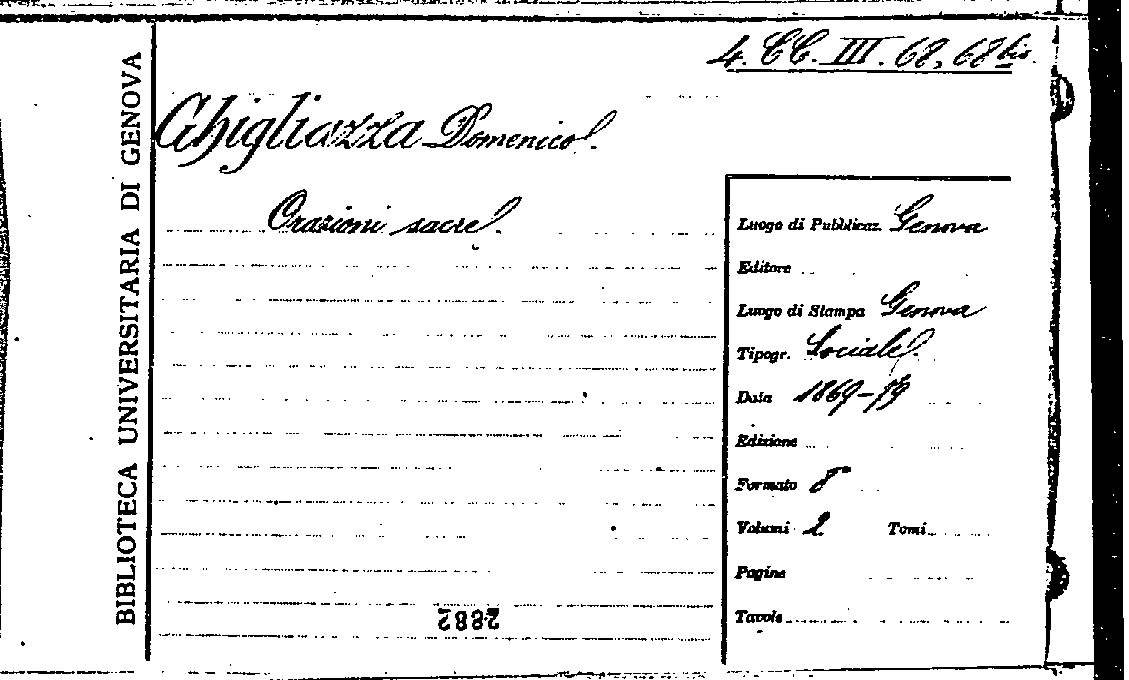 4. CC. III. 68, 68 bis.
BIBLIOTECA UNIVERSITARIA DI GENOVA
Ghigliazza Domenico.
Orazioni sacre.
Luogo di Pubblicaz. Genova
Editore
Luogo di Stampa Genova
Tipogr. Sociale.
Data 1869-79
Edizione
Formato 8°
Volumi 2. Tomi
Pagine
Tavole
2882